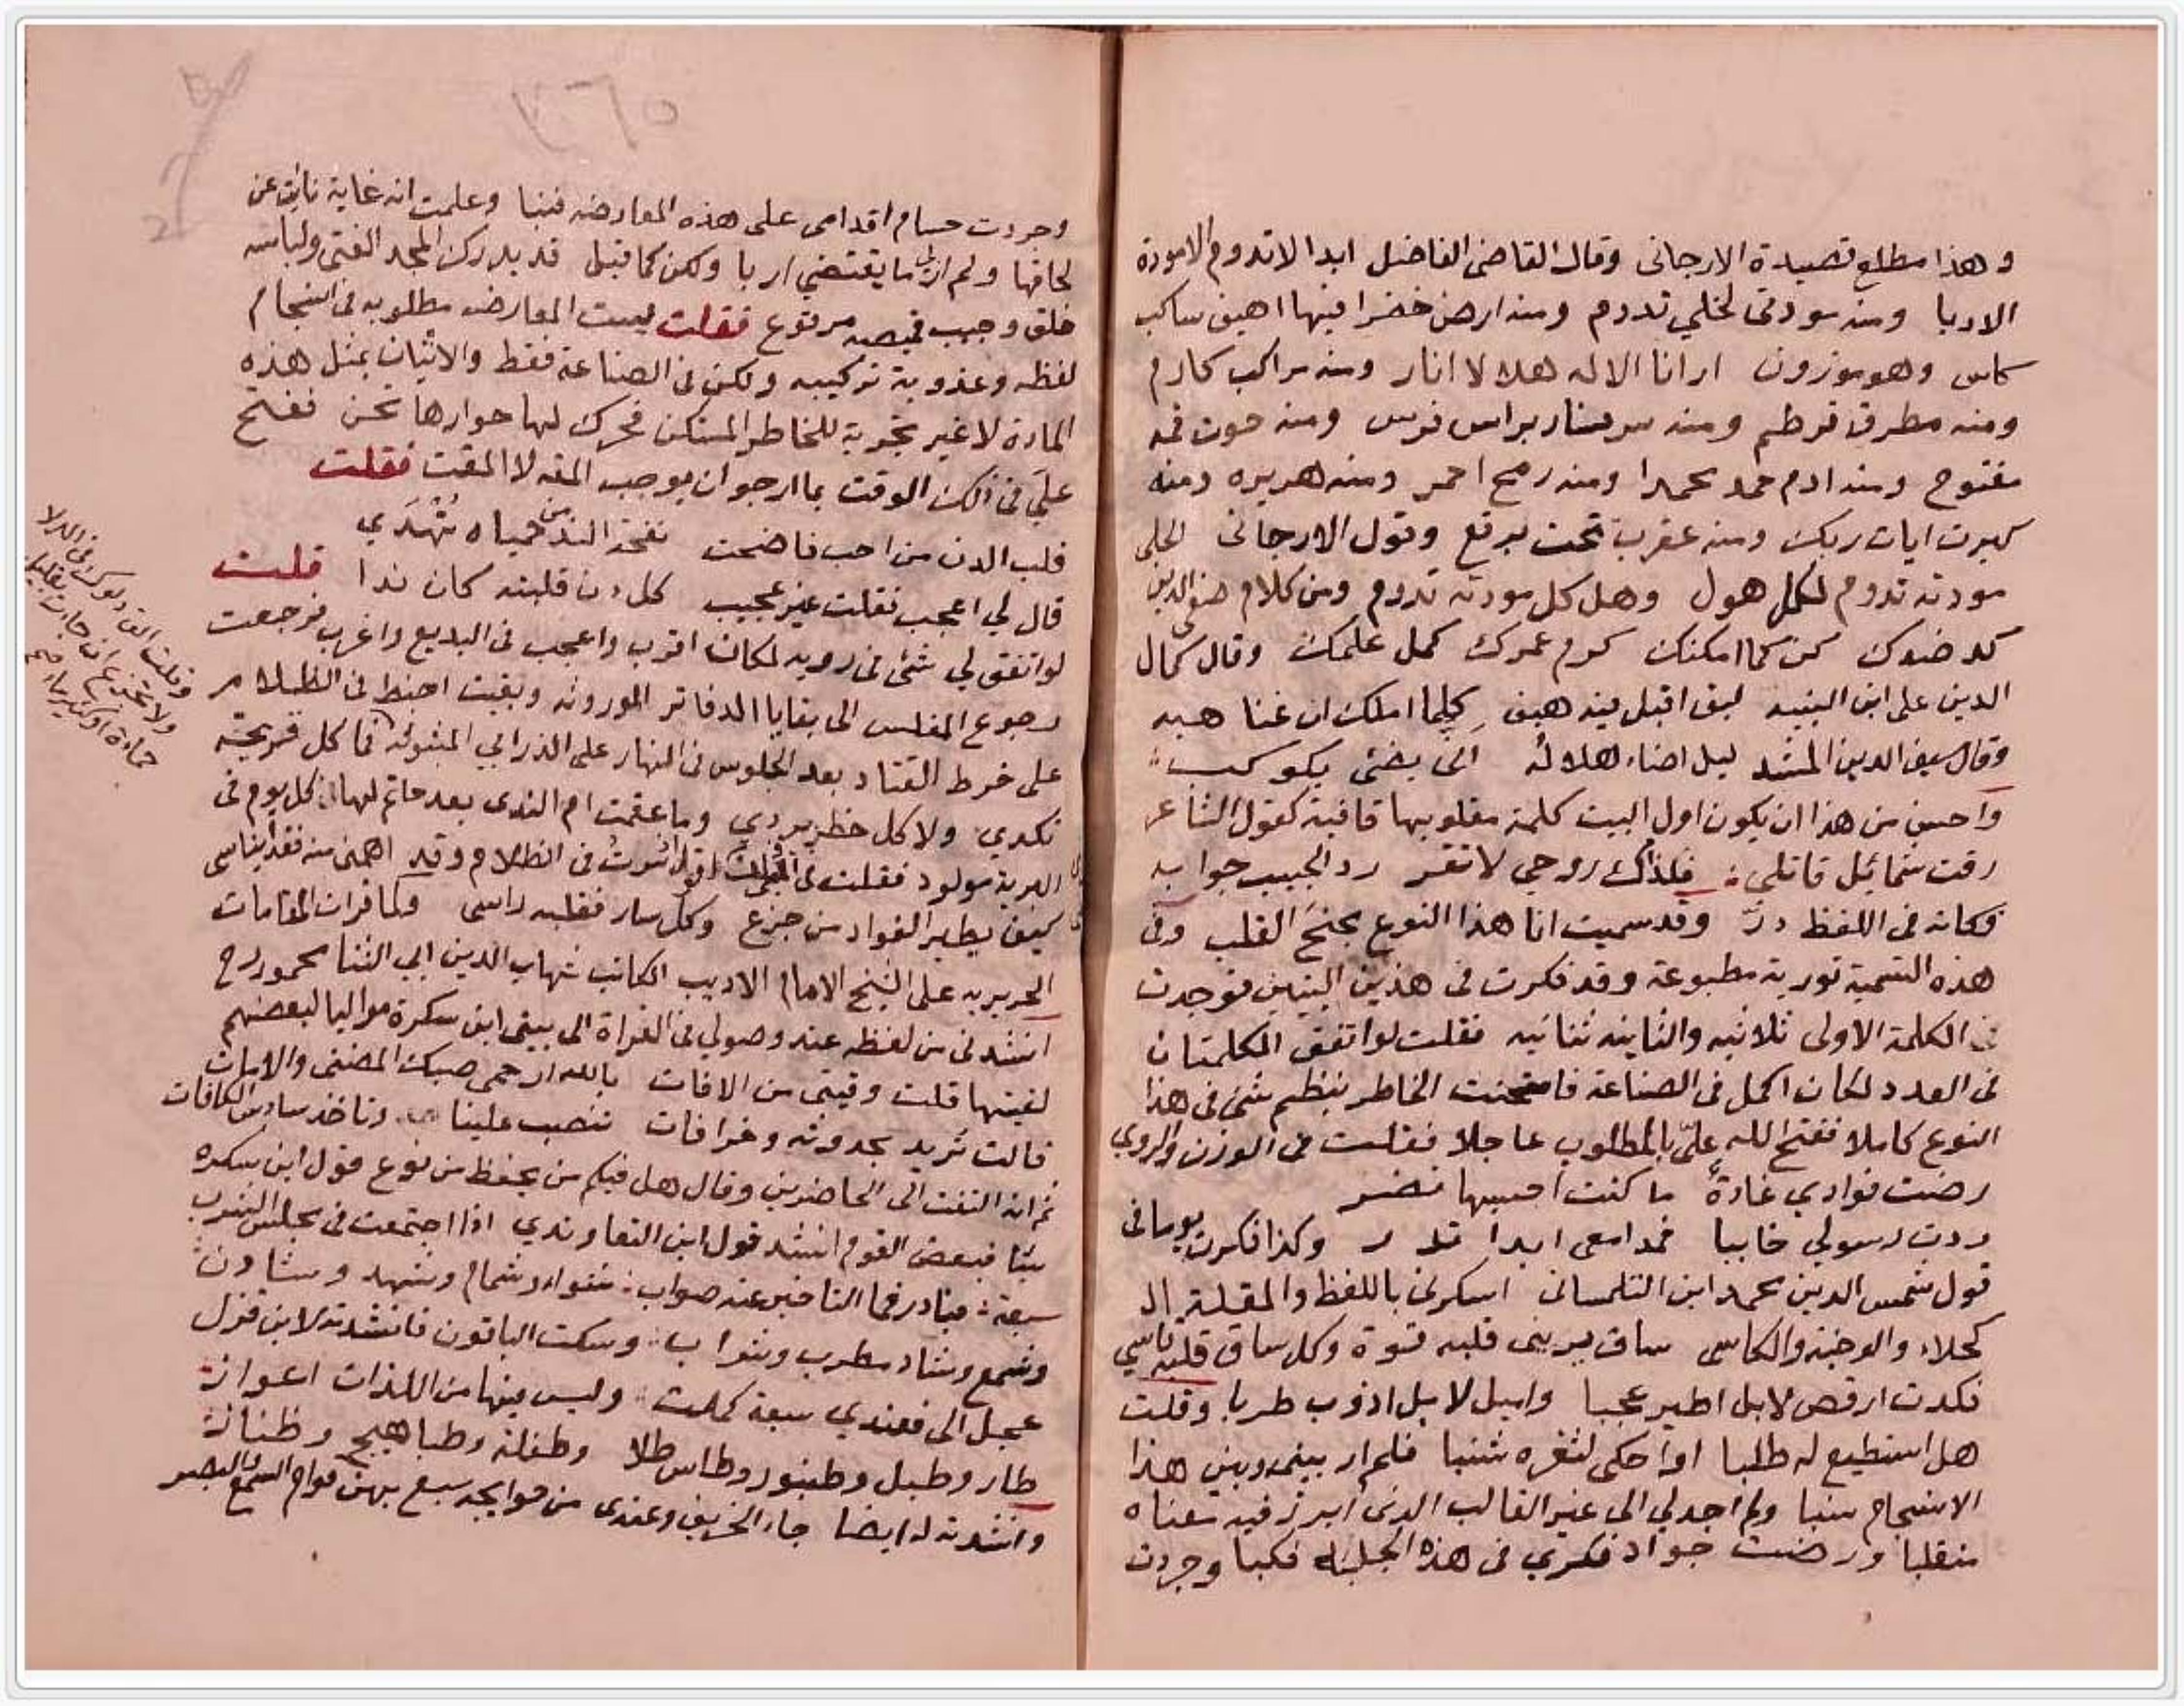 وهذا مطلع قصيدة الارجانى وقال القاضى الفاضل ابدا لا تدوم الا مودة
الادبا ومنه سودتى لخلي تدوم ومنه ارض خضرا فيها اهيف ساكب
كاس وهو موزون ارانا الاله هلالا انار ومنه مراكب كارم
ومنه مطرق قرطم ومنه سر بنار براس فرس ومنه حوت فمه
مفتوح ومنه ادم حمد محمدا ومنه رمح احمر ومنه هريره ومنه
كبرت ايات ربك ومنه عقرب تحت برقع وقول الارجانى لخلى
مودته تدوم لكل هول وهل كل مودته تدوم ومن كلام صفى الدين
كد ضدوك كن كما امكنك كرم عمرك كمل علمك وقال كمال
الدين على ابن النبيه لبق اقبل فيه هيف كلما املك ان غنا هبه
وقال سيف الدين المشد ليل اضاء هلاله انى يضئى بكوكب
واحسن من هذا ان يكون اول البيت كلمة مقلوبها قافية كقول الشاعر
رقت شمائل قاتلي فلذاك روحي لا تقر رد الحبيب جوابه
فكانه فى اللفظ در وقد سميت انا هذا النوع بجنح القلب وفى
هذه التسمية تورية مطبوعة وقد فكرت فى هذين البيتين فوجدت
فى الكلمة الاولى ثلاثيه والثانيه ثنائيه فقلت لو اتفق الكلمتان
فى العدد لكان اكمل فى الصناعة فامتحنت الخاطر بنظم شئ فى هذا
النوع كاملا ففتح الله علىّ بالمطلوب عاجلا فقلت فى الوزن والروي
رضت فوادي غادة ما كنت احسبها تضر
ردت رسولي خايبا فمدامعى ابدا تدر وكذا فكرت يوما فى
قول شمس الدين محمد ابن التلمسانى اسكرنى باللفظ والمقلة ال
كحلاء والوجنة والكاسى ساق يرينى قلبه قسوة وكل ساق قلبه قاسي
فكدت ارقص لا بل اطير عجبا واميل لا بل اذوب طربا وقلت
هل استطيع له طلبا او احكى لثغره شنبا فلم ار بينى وبين هذا
الانسجام سببا ولم اجد لي الى غير القالب الذى ابرز فيه معناه
منقلبا ورضت جواد فكري فى هذه الحلبة فكبا وجردت
وجردت حسام اقدامى على هذه المعارضه فنبا وعلمت انه غاية نايت عن
لحاقها ولم ار لى ما يقتضي اربا ولكن كما قيل قد يدرك المجد الفتى ولباسه
خلق وجيب قميصه مرقوع فقلت ليست المعارضه مطلوبه فى انسجام
لفظه وعذوبة تركيبه ولكن فى الصناعة فقط والاتيان بمثل هذه
المادة لا غير تجربة للخاطر المستكن فحرك لها حوارها تحن ففتح
علىّ فى ذلك الوقت بما ارجو ان يوجب المقه لا المقت فقلت
قلب الدن من احب فاضحت نفحة الند من حمياه تُهْدَي
قال لي اعجب فقلت غير عجيب كل دن قلبته كان ندا قلت
لو اتفق لي شئ فى رويه لكان اقرب واعجب فى البديع واغرب فرجعت
رجوع المفلس الى بقايا الدفاتر الموروثه وبقيت اخبط فى الظلام
على خرط القتاد بعد الجلوس فى النهار على الذرابي المبثوثه فما كل قريحة
تكدي ولا كل خطر يردي وما عقمت ام الندى بعد حاتم لها كل يوم فى
البرية مولود فقلت فى المجلس اقول سرت فى الظلام وقد اهمنى منه فقد ايناسى
كيف يطير الفواد من جزع وكل سار فقلبه راسى ولما قرات المقامات
الحريريه على الشيخ الامام الاديب الكاتب شهاب الدين ابي الثنا محمود رح
انشدنى من لفظه عند وصولي فى القراة الى بيتى ابن سكرة مواليا لبعضهم
لقيتها قلت وقيتى من الافات بالله ارحمى صبك المضنى والا مات
قالت تريد بحدوثه وخرافات تنصب علينا وتاخذ سادس الكافات
ثم انه التفت الى الحاضرين وقال هل فيكم من يحفظ من نوع قول ابن سكره
شيا فبعض القوم انشد قول ابن التعاويذي اذا اجتمعت فى مجلس الشرب
سبعة فبادر فما التاخير عنه صواب شواء وشمام وشهد وشادن
وشمع وشاد مطرب وشراب وسكت الباقون فانشدته لابن قزل
عجل الى فعندي سبعة كملت وليس فيها من اللذات اعواز
طار وطبل وطنبور وطاس طلا وطفلة وطباهيج وطنانز
وانشدته له ايضا جاء الخريف وعندى من حوايجه سبع بهن قوام السمع والبصر
وقلت